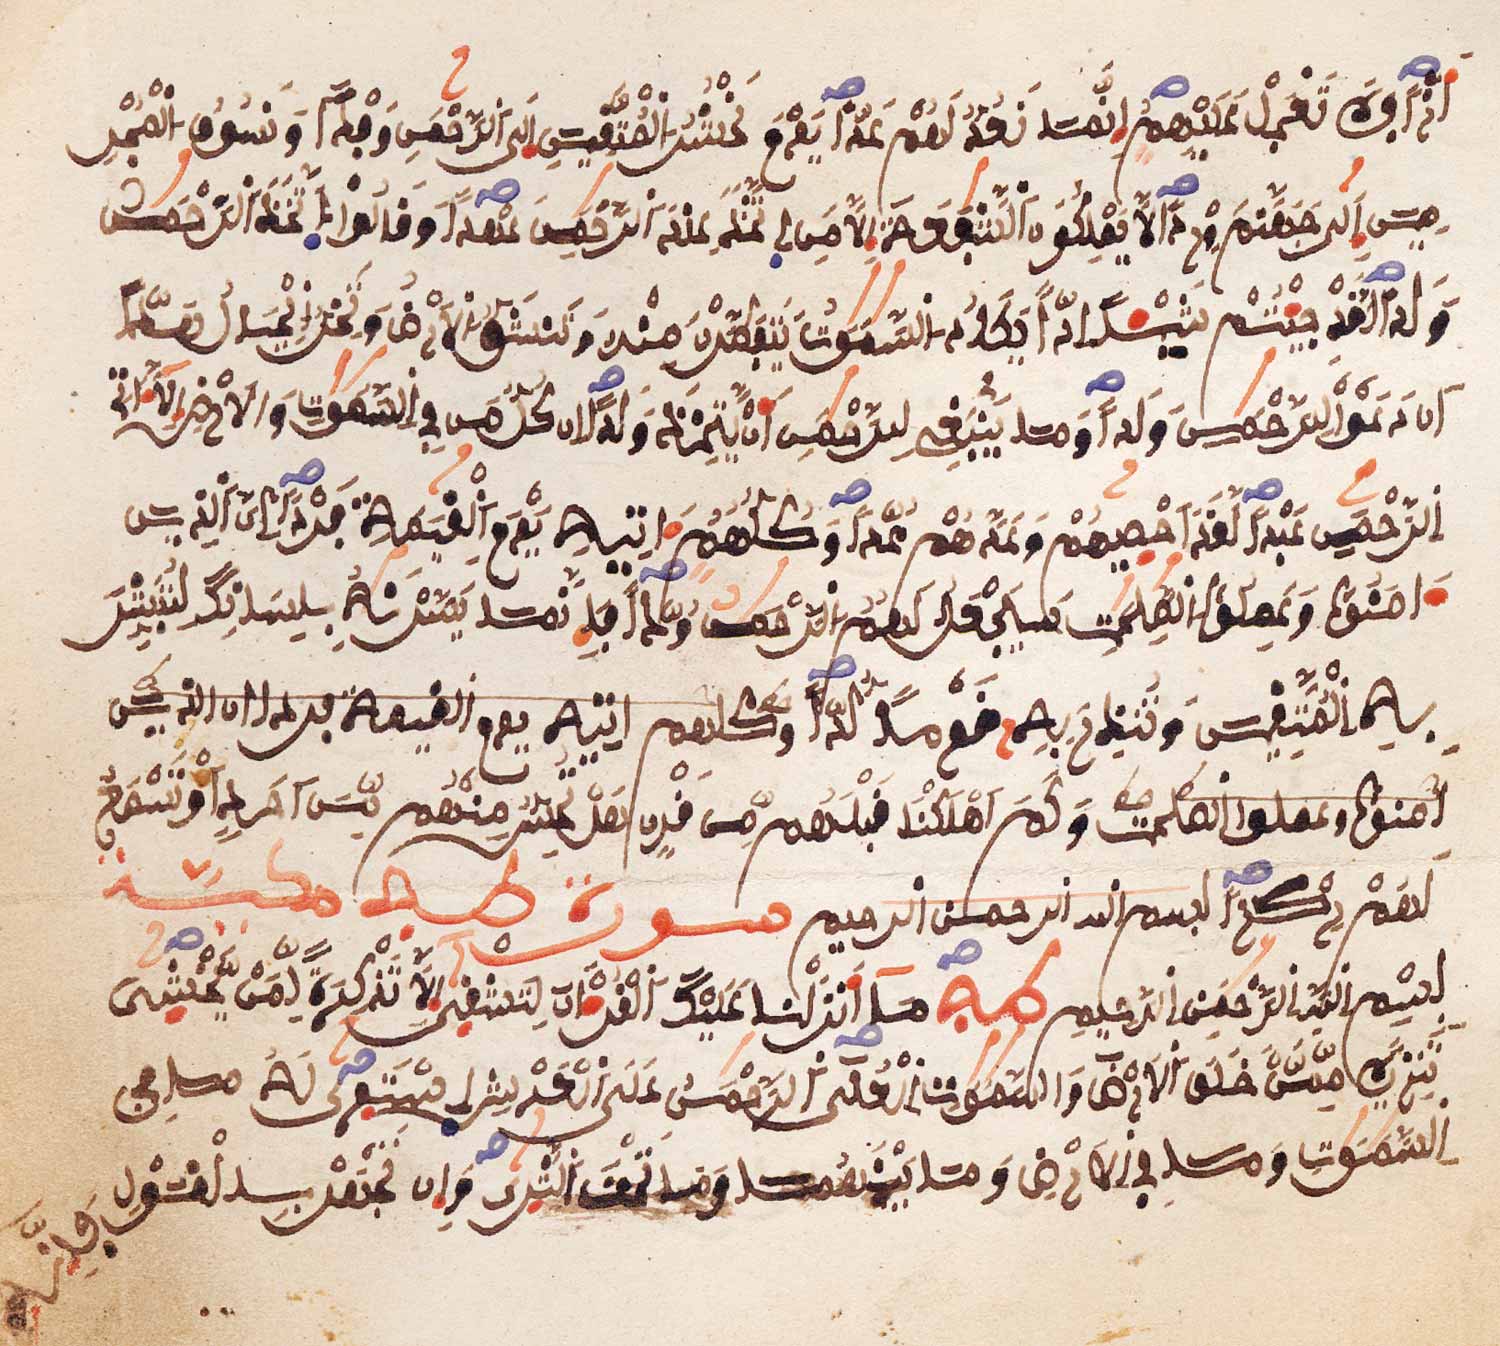 أزا فلا تعجل عليهم إنما نعد لهم عدا يوم نحشر المتقين إلى الرحمن وفدا ونسوق المجر
مين إلى جهنم وردا لا يملكون الشفعة إلا من اتخذ عند الرحمن عهدا وقالوا اتخذ الرحمن
ولدا لقد جئتم شيئا إدا يكاد السموت يتفطرن منه وتنشق الأرض وتخر الجبال هدا
ان دعوا للرحمن ولدا وما ينبغي للرحمن أن يتخذ ولدا ان كل من في السموت والأرض إلا اتي
الرحمن عبدا لقد احصيهم وعدهم عدا وكلهم اتيه يوم القيمة فردا ان الذين
امنوا وعملوا الصلحت سيجعل لهم الرحمن ودا فإنما يسرنه بلسانك لتبشر
به المتقين وتنذر به قوما لدا وكلهم اتيه يوم القيمة فردا ان الذين
امنوا وعملوا الصلحت وكم اهلكنا قبلهم من قرن هل تحس منهم من احد أو تسمع
لهم ركزا بسم الله الرحمن الرحيم سورة طه مكية
بسم الله الرحمن الرحيم طه ما أنزلنا عليك القران لتشقى إلا تذكرة لمن يخشى
تنزيلا ممن خلق الأرض والسموت العلى الرحمن على العرش استوى له ما في
السموت وما في الأرض وما بينهما وما تحت الثرى وإن تجهر بالقول
فإنه